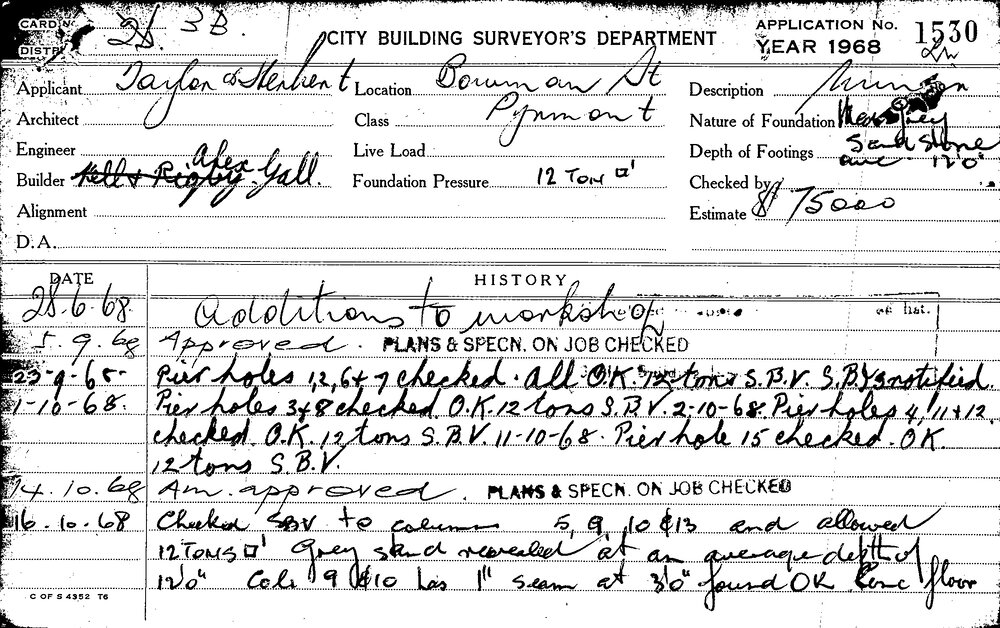 CARD No. 28 3B. CITY BUILDING SURVEYOR'S DEPARTMENT APPLICATION No. 1530
DISTR. YEAR 1968
Applicant Taylor & Herbert Location Bowman St Description
Architect Class Pyrmont Nature of Foundation Grey
Engineer Live Load Depth of Footings Sand Stone
Builder Kell & Rigby Alex Gall. Foundation Pressure 12 Tons □' ave 12'0"
Alignment Checked by
D.A. Estimate $ 75000
DATE HISTORY
28.6.68. Additions to workshop
5.9.68 Approved. PLANS & SPECN. ON JOB CHECKED
23-9-68- Pier holes 1,2,6+7 checked. All O.K. 12 tons S.B.V. S.B.V. notified.
1-10-68. Pier holes 3+8 checked. O.K. 12 tons S.B.V. 2-10-68. Pier holes 4, 11+12
checked. O.K. 12 tons S.B.V. 11-10-68. Pier hole 15 checked. OK.
12 tons S.B.V.
14.10.68 Am. approved. PLANS & SPECN. ON JOB CHECKED
16.10.68 Checked SBV to columns 5, 9, 10 & 13 and allowed
12 Tons □' Grey sand revealed at an average depth of
12'0" Cols 9 & 10 has 1" seam at 3'0" found OK Conc floor
C OF S 4352 T6